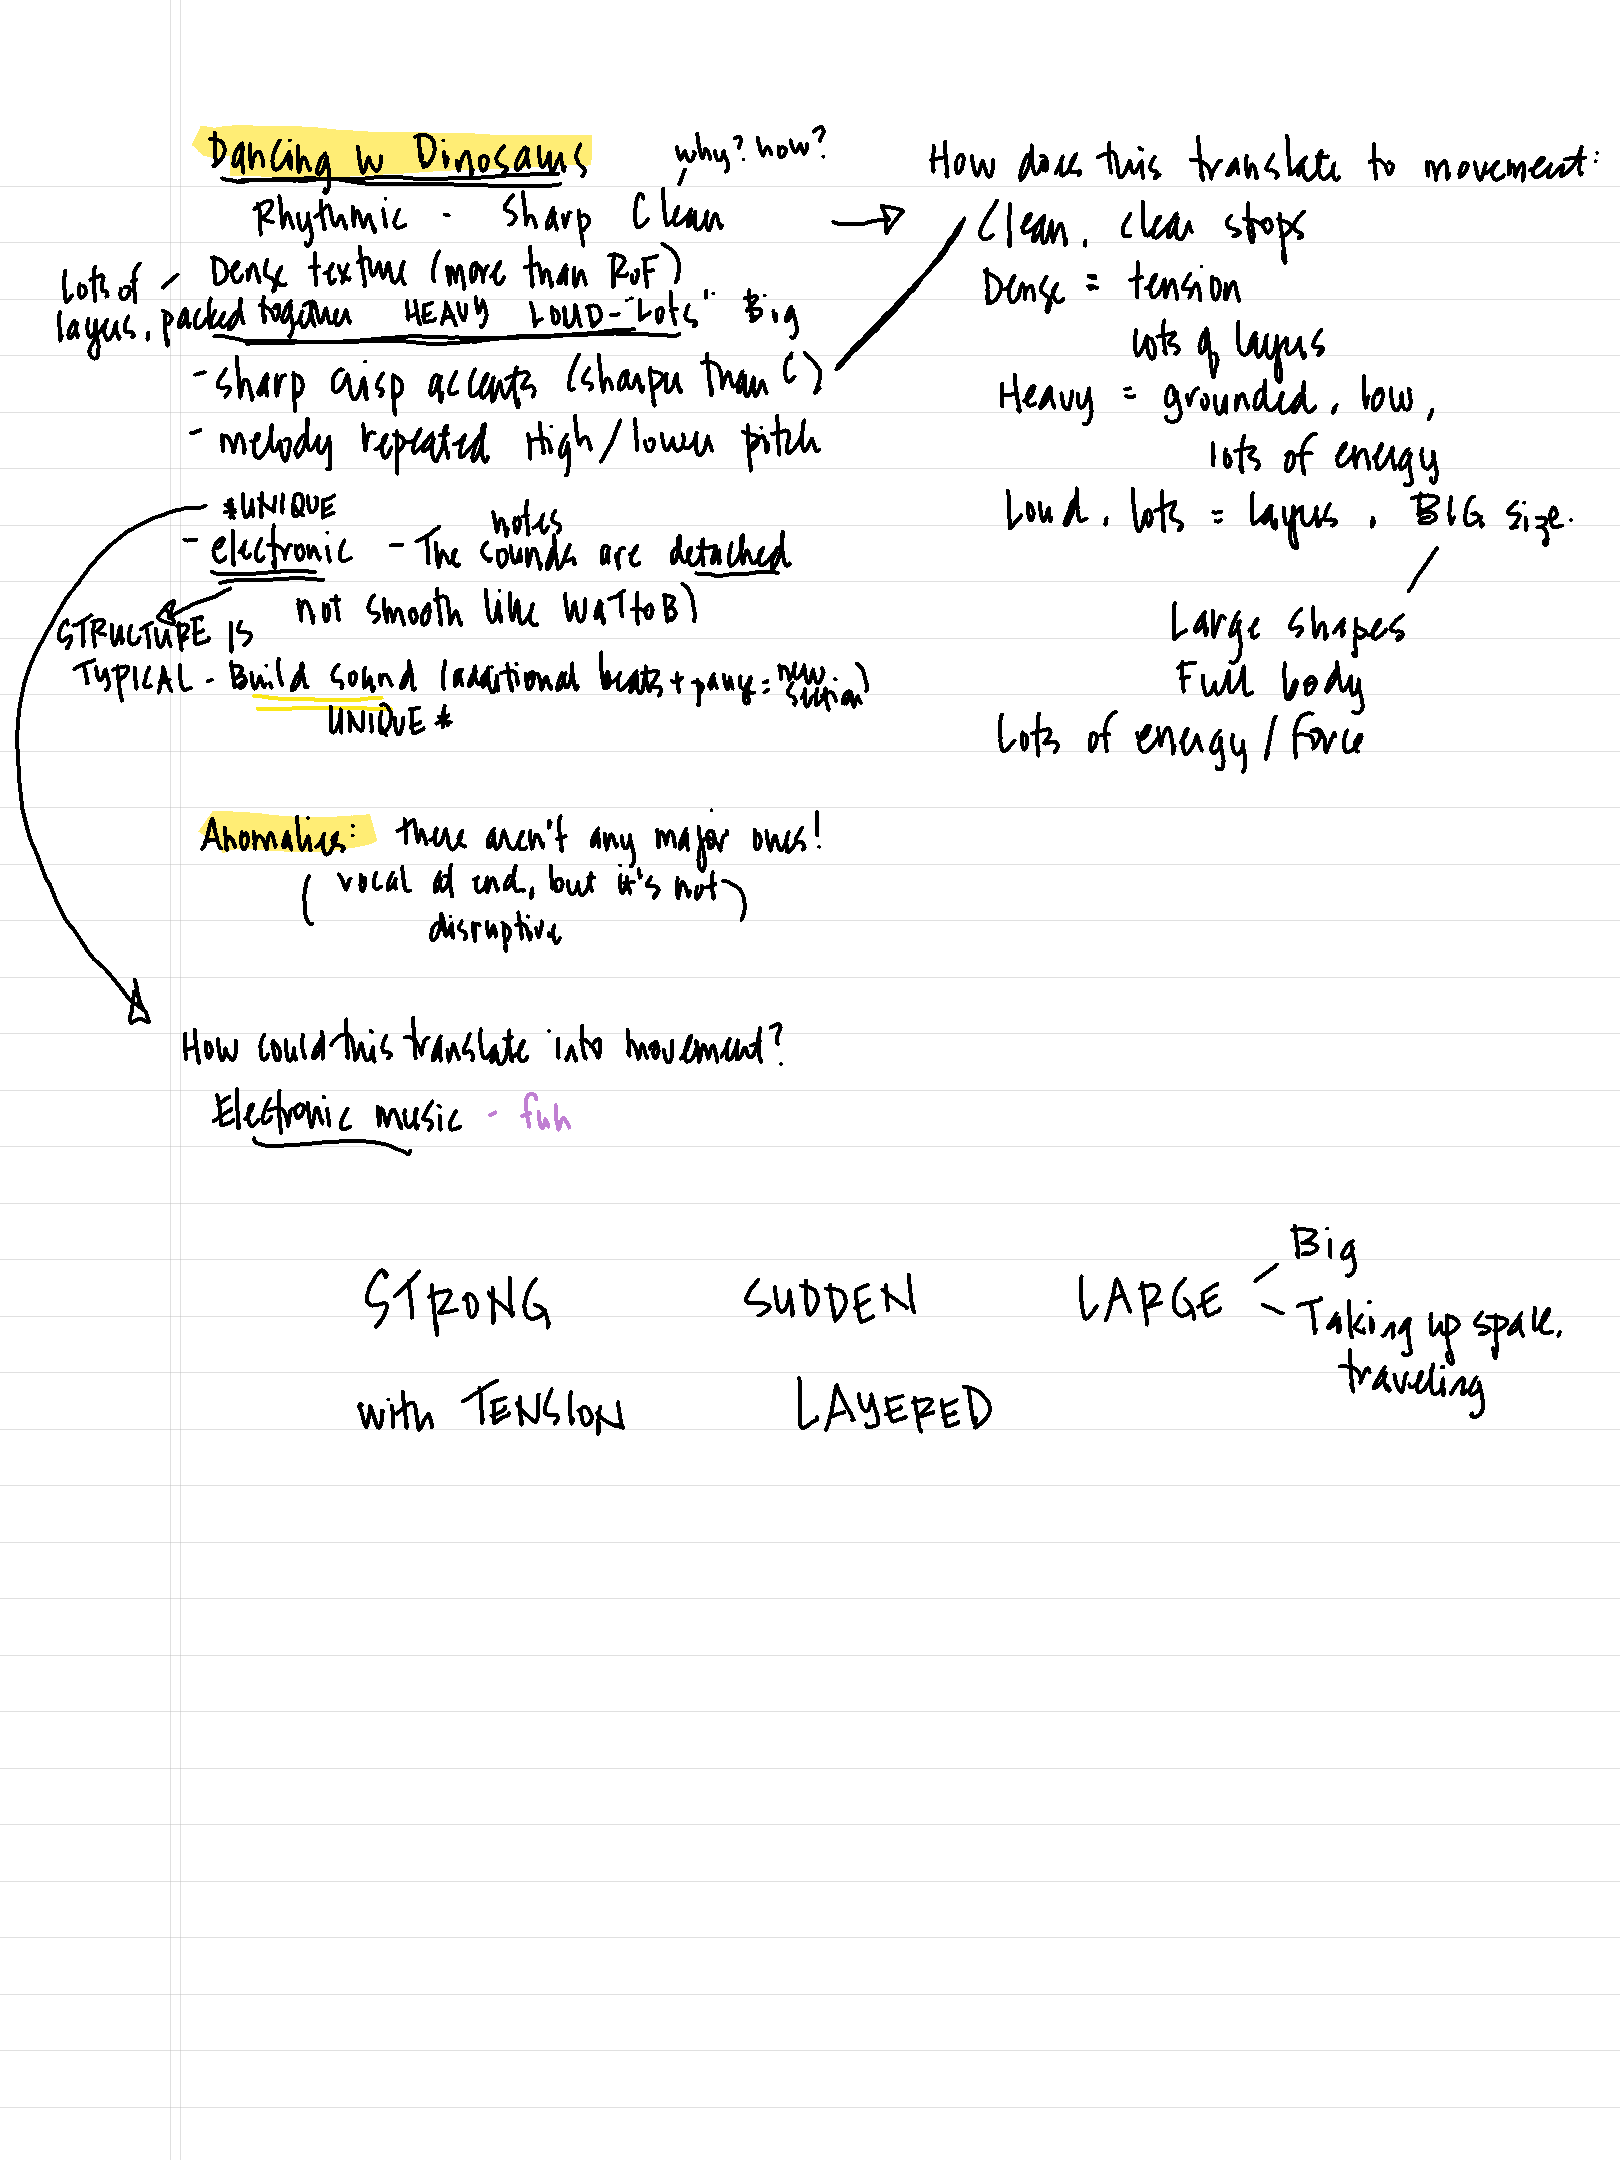 Dancing w Dinosaurs
why? how?
Rhythmic - Sharp Clean
Lots of layers, packed together
Dense texture (more than RoF)
HEAVY LOUD - "Lots" Big
- sharp crisp accents (sharper than C)
- melody repeated High/lower pitch
*UNIQUE
notes
- electronic - The sounds are detached
not smooth like WaTtoB)
STRUCTURE IS
TYPICAL - Build sound (additional beats + pause = new section)
UNIQUE *
Anomalies: there aren't any major ones!
(vocal at end, but it's not
disruptive)
How could this translate into movement?
Electronic music - fun
How does this translate to movement:
Clean, clear stops
Dense = tension
lots of layers
Heavy = grounded, low,
lots of energy
Loud, lots = layers, BIG size.
Large shapes
Full body
Lots of energy / force
STRONG SUDDEN LARGE
Big
Taking up space,
traveling
with TENSION LAYERED